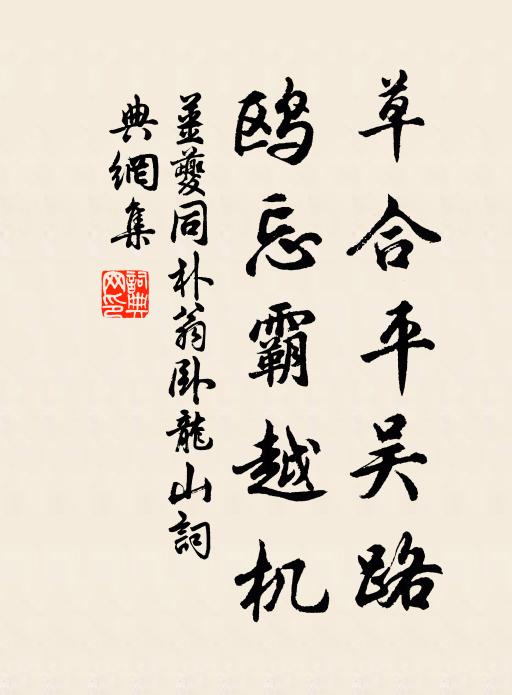 草合平吴路
鸥忘霸越机
姜夔同朴翁卧龍山詞
典網集
詞典网印